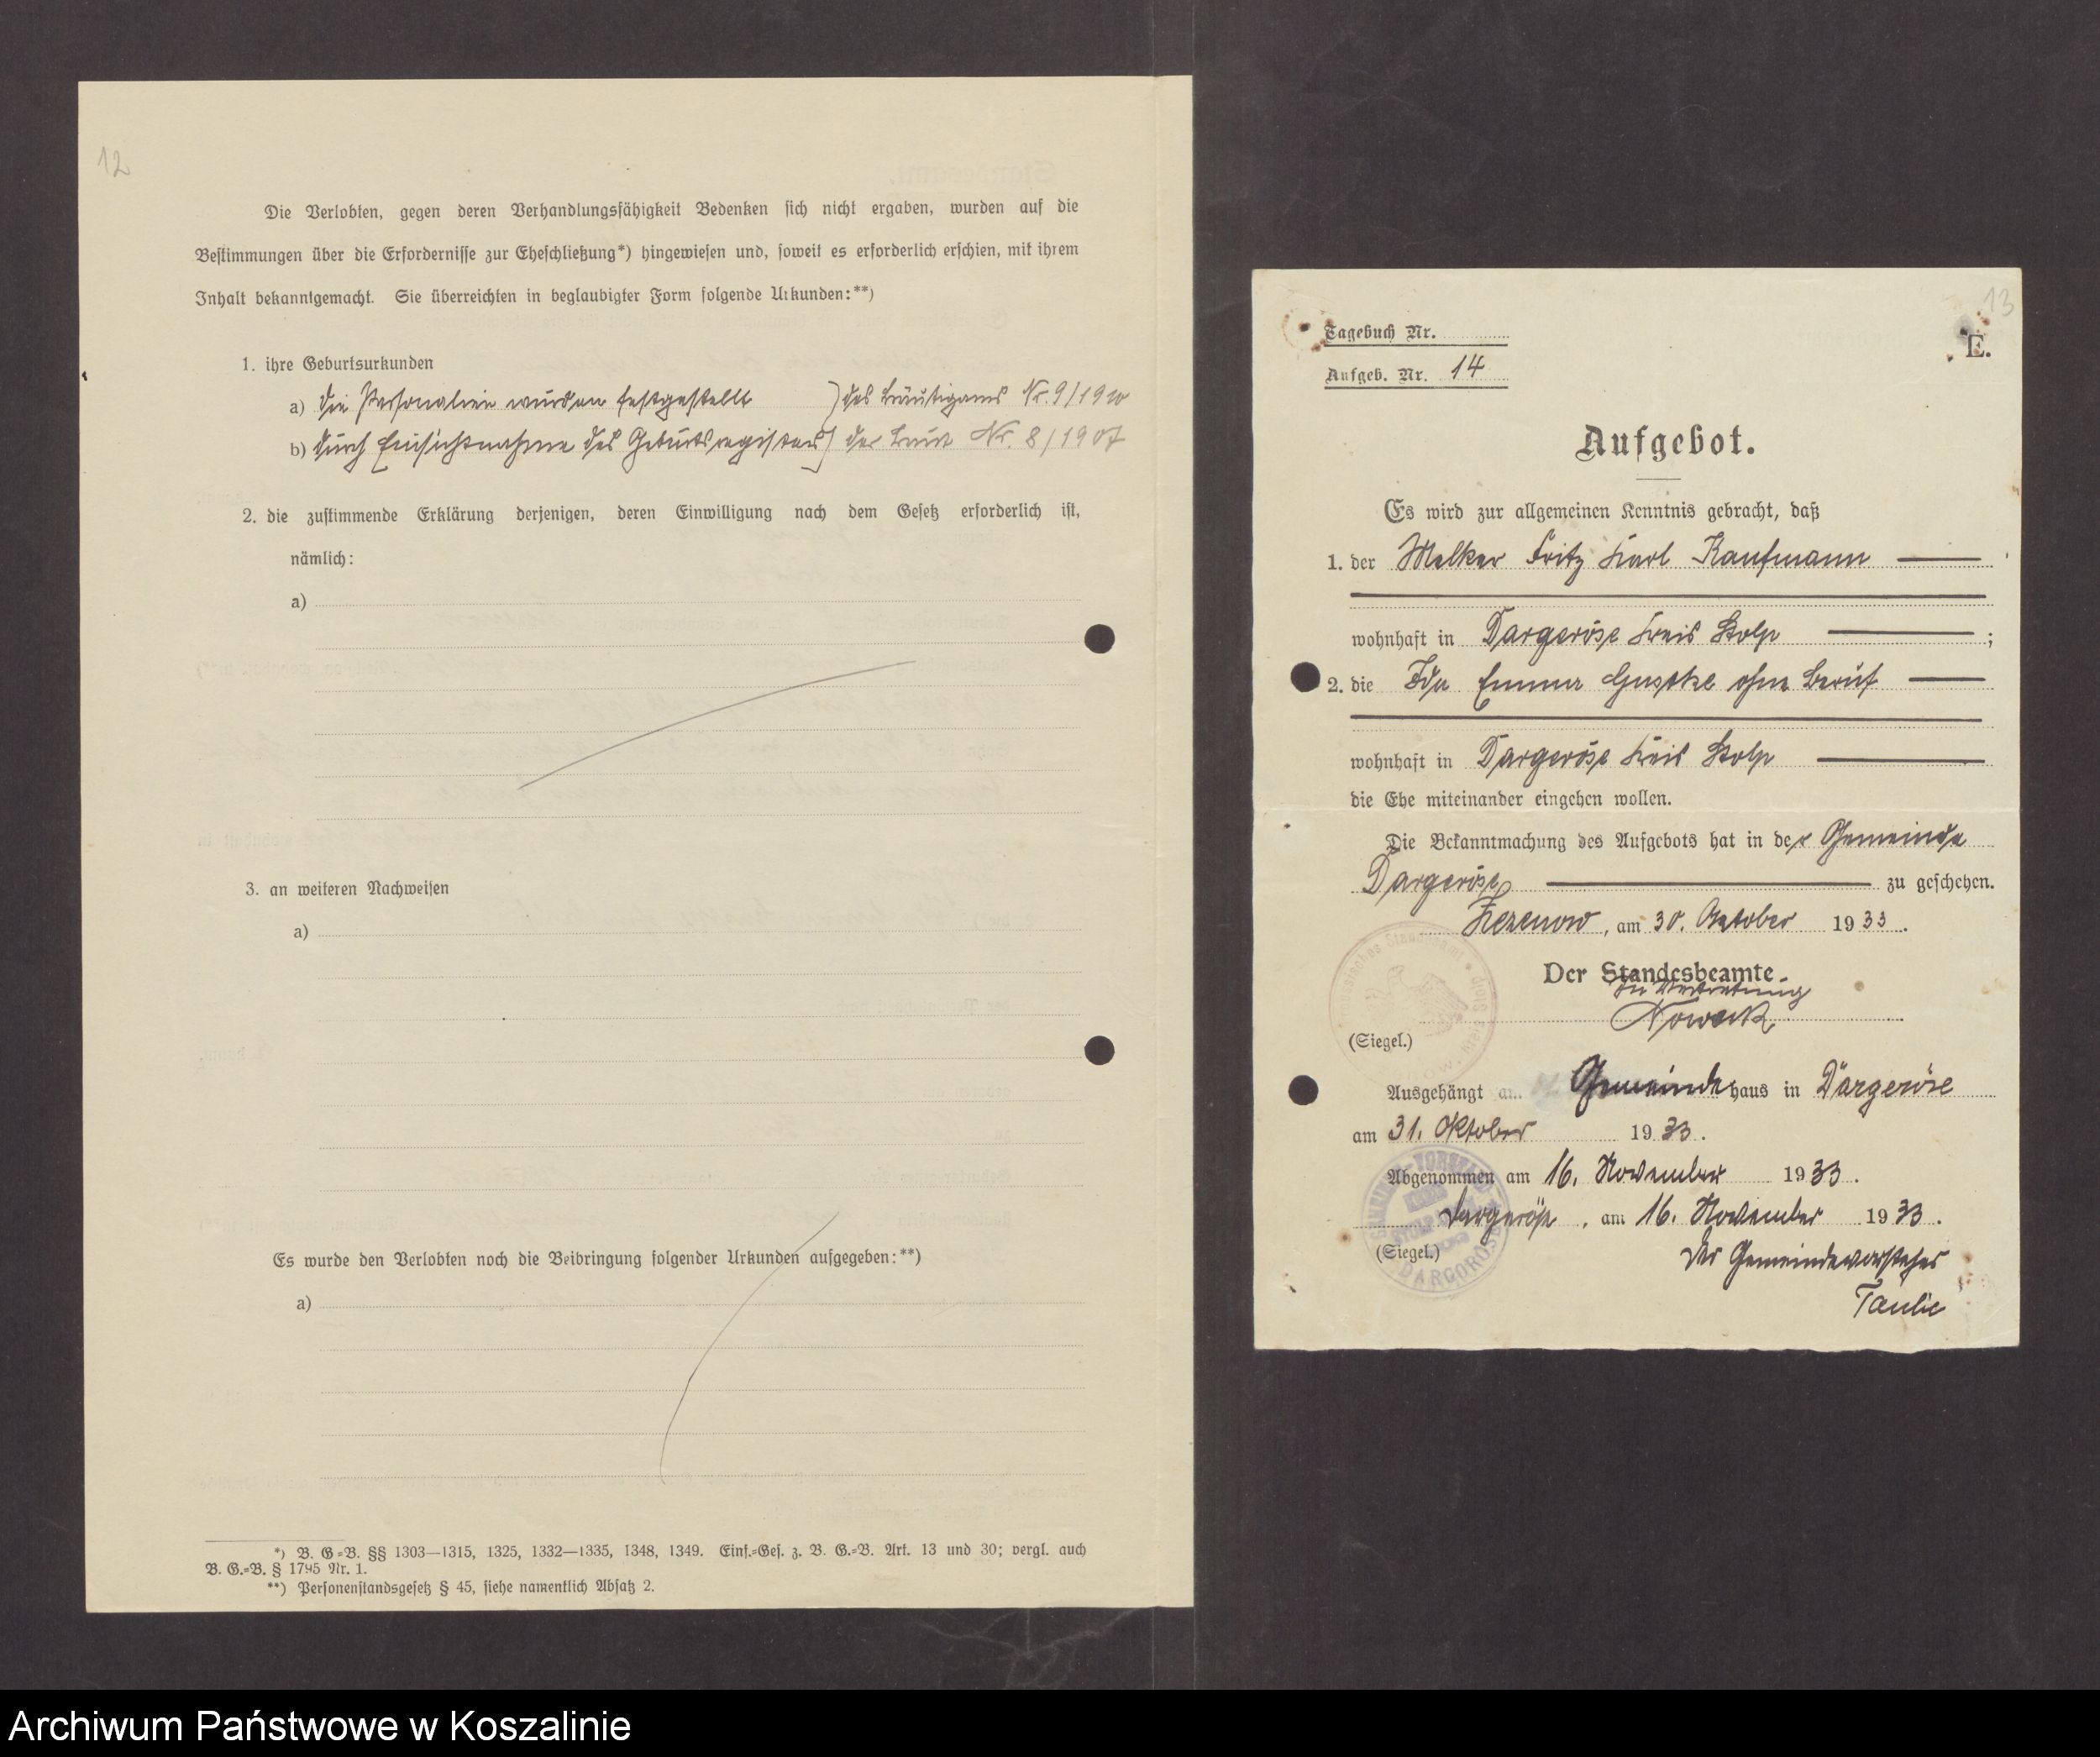 12
Die Verlobten, gegen deren Verhandlungsfähigkeit Bedenken sich nicht ergaben, wurden auf die
Bestimmungen über die Erfordernisse zur Eheschließung*) hingewiesen und, soweit es erforderlich erschien, mit ihrem
Inhalt bekanntgemacht. Sie überreichten in beglaubigter Form folgende Urkunden:**)
1. ihre Geburtsurkunden
a) die Personalien wurden festgestellt ) des Bräutigams Nr. 9/1910
b) durch Einsichtnahme des Geburtsregisters ) der Braut Nr. 8/1907
2. die zustimmende Erklärung derjenigen, deren Einwilligung nach dem Gesetz erforderlich ist,
nämlich:
a)
3. an weiteren Nachweisen
a)
Es wurde den Verlobten noch die Beibringung folgender Urkunden aufgegeben:**)
a)
*) B. G.=B. §§ 1303—1315, 1325, 1332—1335, 1348, 1349. Einf.=Ges. z. B. G.=B. Art. 13 und 30; vergl. auch
B. G.=B. § 1795 Nr. 1.
**) Personenstandsgesetz § 45, siehe namentlich Absatz 2.
13
Tagebuch Nr.
E.
Aufgeb. Nr. 14
Aufgebot.
Es wird zur allgemeinen Kenntnis gebracht, daß
1. der Melker Fritz Karl Kaufmann
wohnhaft in Dargeröse Kreis Stolp ;
2. die Ida Emma Guske ohne Beruf
wohnhaft in Dargeröse Kreis Stolp
die Ehe miteinander eingehen wollen.
Die Bekanntmachung des Aufgebots hat in der Gemeinde
Dargeröse zu geschehen.
Zezenow, am 30. Oktober 1933.
Der Standesbeamte.
In Vertretung
Nowack
(Siegel.)
Ausgehängt am Gemeindehaus in Dargeröse
am 31. Oktober 1933.
Abgenommen am 16. November 1933.
Dargeröse, am 16. November 1933.
(Siegel.)
DARGORÖSE
Der Gemeindevorsteher
Archiwum Państwowe w Koszalinie